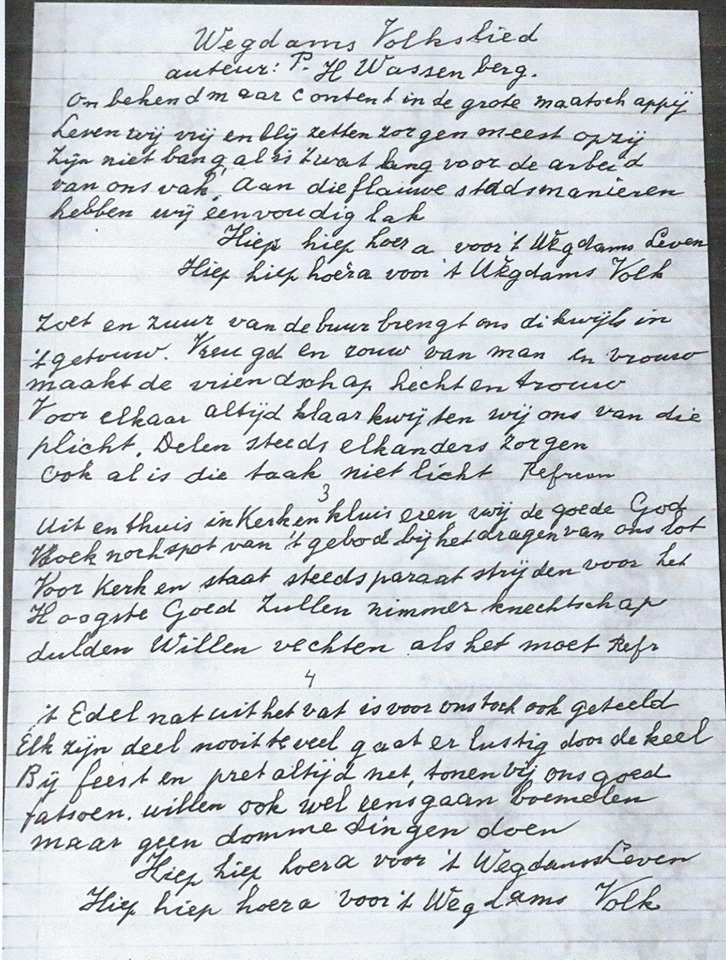 Wegdams Volkslied
auteur: P. H Wassenberg.
Onbekend maar content in de grote maatschappij
Leven wij vrij en blij zetten zorgen meest opzij
Zijn niet bang, al is 't wat lang voor de arbeid
van ons vak, Aan die flauwe stadsmanieren
hebben wij éénvoudig lak
Hiep hiep hoera voor 't Wegdams Leven
Hiep hiep hoera voor 't Wegdams Volk
Zoet en zuur van de buur brengt ons dikwijls in
't getouw. Vreugd en rouw van man en vrouw
maakt de vriendschap hecht en trouw
Voor elkaar altijd klaar kwijten wij ons van die
plicht, Delen steeds elkanders zorgen
ook al is die taak niet licht Refrein
3
Uit en thuis in Kerk en kluis eren wij de goede God
Hoek noch spot van 't gebod bij het dragen van ons lot
Voor Kerk en staat steeds paraat strijden voor het
Hoogste Goed Zullen nimmer knechtschap
dulden Willen vechten als het moet Refr
4
't Edel nat uit het vat is voor ons toch ook geteeld
Elk zijn deel nooit te veel gaat er lustig door de keel
Bij feest en pret altijd net, tonen wij ons goed
fatsoen. willen ook wel eens gaan boemelen
maar geen domme dingen doen
Hiep hiep hoera voor 't Wegdams Leven
Hiep hiep hoera voor 't Wegdams Volk